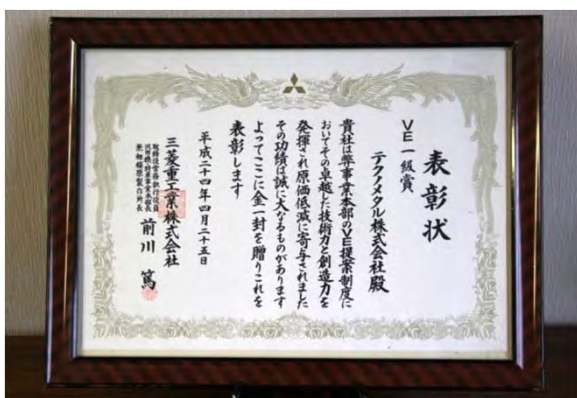 表彰状
VE一級賞
テクノメタル株式会社殿
貴社は弊事業本部のVE提案制度に
おいてその卓越した技術力と創造力を
発揮され原価低減に寄与されました
その功績は誠に大なるものがあります
よってここに金一封を贈りこれを
表彰します
平成二十四年四月二十五日
三菱重工業株式会社
取締役常務執行役員
汎用機・特車事業本部長
兼相模原製作所長
前川 篤